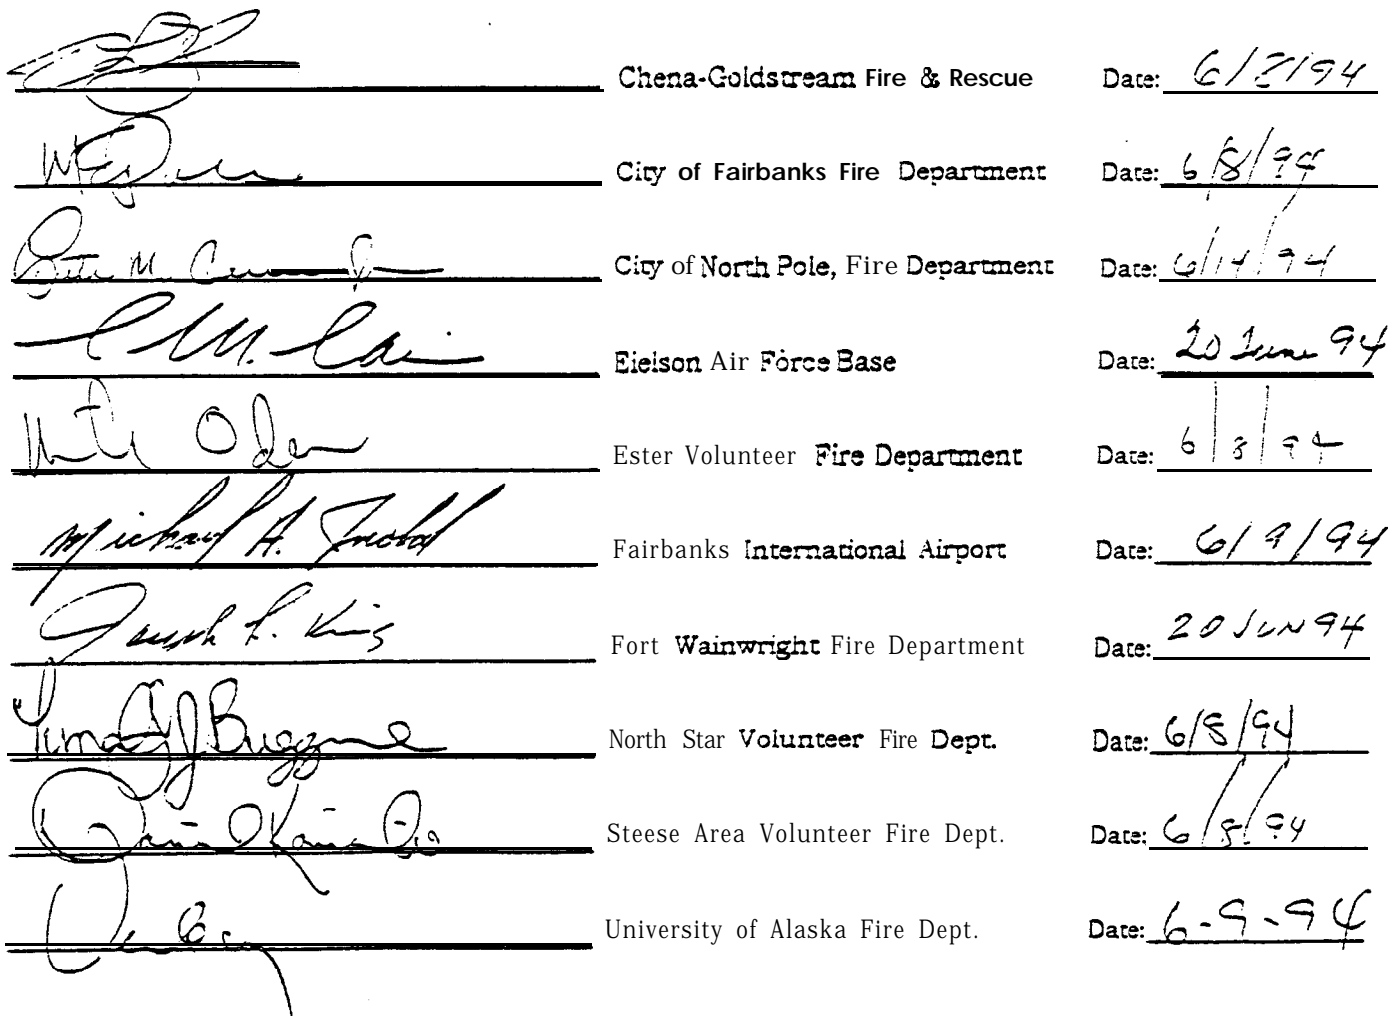 Chena-Goldstream Fire & Rescue Date: 6/ /94
City of Fairbanks Fire Department Date: 6/8/94
City of North Pole, Fire Department Date: 6/14/94
Eielson Air Force Base Date: 20 June 94
Oden Ester Volunteer Fire Department Date: 6/8/94
Michael A. Fairbanks International Airport Date: 6/9/94
Joseph L. King Fort Wainwright Fire Department Date: 20 JUN 94
North Star Volunteer Fire Dept. Date: 6/8/94
Steese Area Volunteer Fire Dept. Date: 6/8/94
University of Alaska Fire Dept. Date: 6-9-94